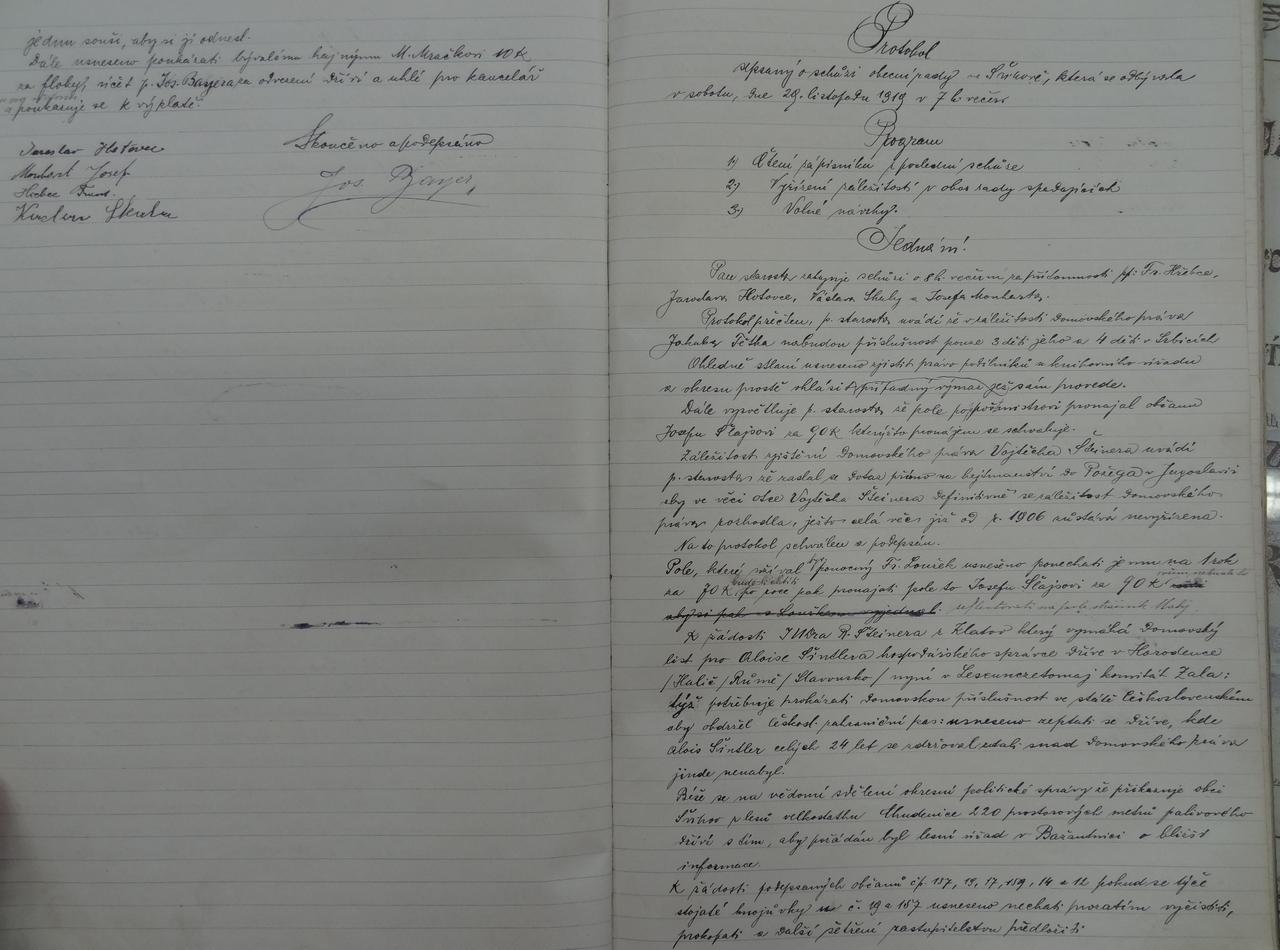 jednu souši, aby si ji odnesl.
Dále usneseno poukázati bývalému hajnýmu M. Mračkovi 10 K
za hloby, účet p. Jos. Bayera za odvezení dříví a uhlí pro kancelář
a poukazuje se k výplatě.
Jaroslav Hotovec
Monhart Josef
Hřebec Frant.
Skončeno a podepsáno
Jos. Bayer,
Protokol
sepsaný o schůzi obecní rady ve Švihově, která se odbývala
v sobotu, dne 29. listopadu 1919 v 7 h večer
Program
1.) Čtení zápisníku z poslední schůze
2.) Vyřízení záležitostí v obor rady spadajících
3.) Volné návrhy.
Jednání!
Pan starosta zahajuje schůzi o 8 h. večerní za přítomnosti pp: Fr. Hřebce,
Jaroslava Hotovce, Václava Skaly a Josefa Monharta.
Protokol přečten, p. starosta uvádí že v záležitosti domovského práva
Jakuba Tětka nabudou příslušnost pouze 3 děti jeho a 4 děti v Srbicích
Ohledně stlaní usneseno zjistiti právo podílníků u knihovního úřadu
a okresu prostě ohlásit, případný výmaz jež sám provede.
Dále vysvětluje p. starosta že pole po poštmistrovi pronajal občanu
Josefu Šlajsovi za 90 K kterýžto pronájem se schvaluje.
Záležitost zjištění domovského práva Vojtěcha Šteinera uvádí
p. starosta že zaslal se dotaz přímo na hejtmanství do Požega v Jugoslavii
aby ve věci otce Vojtěcha Šteinera definitivně se záležitost domovského
práva rozhodla, ježto celá věc již od r. 1906 zůstává nevyřízena.
Na to protokol schválen a podepsán.
Pole, které užíval ponocný Fr. Louček usneseno ponechati jemu na 1 rok
za 70 K, bude-li chtíti po roce pak pronajati pole to Josefu Šlajsovi za 90 K
aby si pak s Loučkem vyjednal. reflektovati na pole
K žádosti JUDra R. Šteinera z Klatov který vymáhá domovský
list pro Aloise Šindlera hospodářského správce dříve v Horodence
/Halič/ Rumě/ Slavonsko/ nyní v Lesenczetomaj komitát Zala:
týž potřebuje prokázati domovskou příslušnost ve státě Československém
aby obdržel českosl. zahraniční pas: usneseno zeptati se dříve, kde
Alois Šindler celých 24 let se zdržoval zdali snad domovského práva
jinde nenabyl.
Béře se na vědomí sdělení okresní politické správy že přikazuje obci
Švihov z lesů velkostatku Chudenice 220 prostorových metrů palivového
dříví s tím, aby požádán byl lesní úřad v Bažantnici o bližší
informace.
K žádosti podepsaných občanů čp. 157, 19, 17, 159, 14 a 12 pokud se týče
stojaté hnojůvky u č. 19 a 157 usneseno nechati prozatím vyčistiti,
prokopati a další šetření zastupitelstvu předložiti